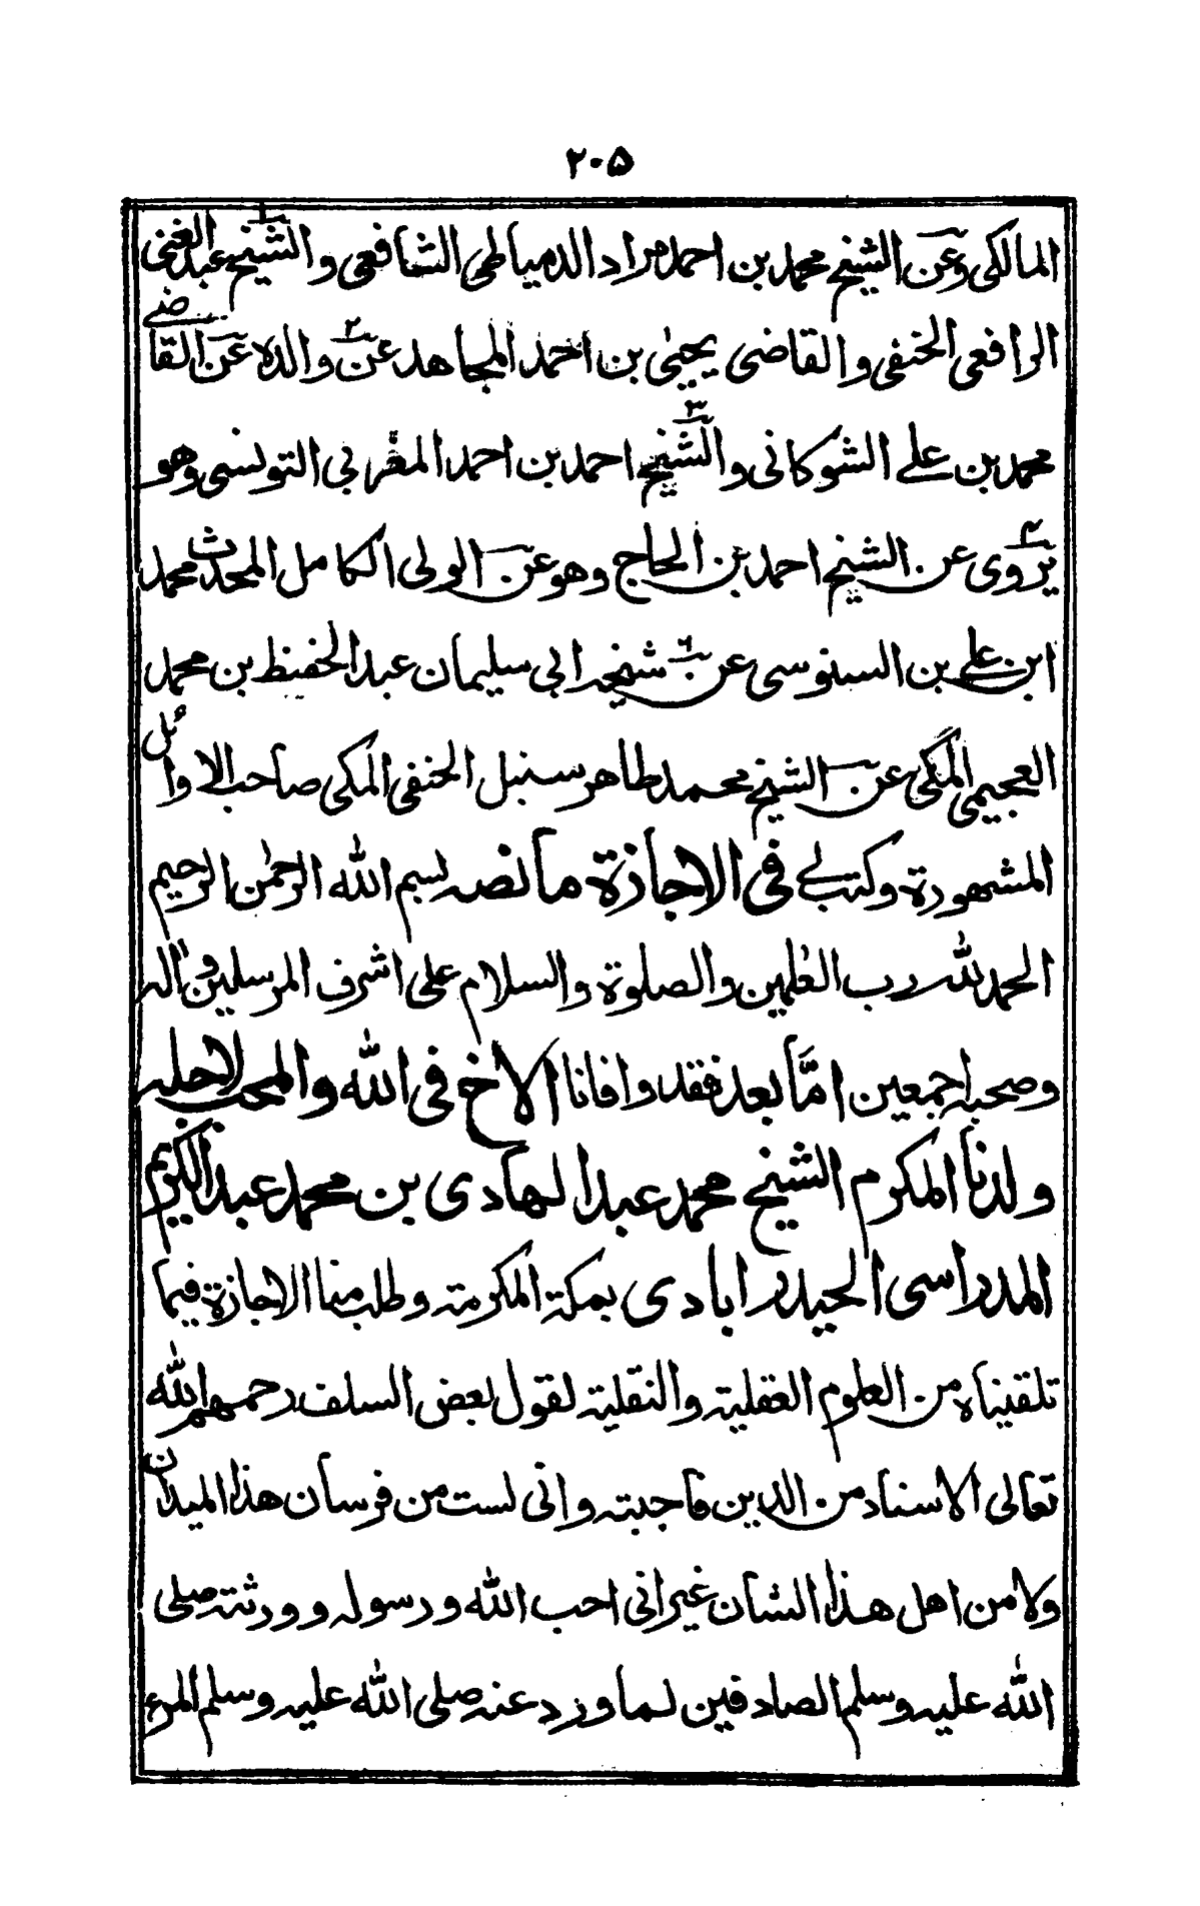 ٢٠۵
المالكى وعن الشيخ محمد بن احمد مراد الدمياطى الشافعى و١الشيخ عبد الغنى
الرافعى الحنفى والقاضى يحيىٰ بن احمد المجاهد عن٢ والده عن القاضے
محمد بن علے الشوكانى و٣الشيخ احمد بن احمد المغربى التونسى وهو
يروى٤ عن الشيخ احمد بن الحاج وهو عن الولى الكامل المحدث محمد
ابن علے بن السنوسى عن شيخه ابى سليمان عبد الحفيظ بن محمد
العجيمى المكى عن الشيخ محمد طاهر سنبل الحنفى المكى صاحب الاوائل
المشهورة وكتب لے فى الاجازة ما نصه بسم الله الرحمٰن الرحيم
الحمد لله رب العٰلمين والصلوة والسلام على اشرف المرسلين واٰله
وصحبه اجمعين امَّا بعد فقد وافانا الاخ فى الله والمحب لاجله
ولدنا المكرم الشيخ محمد عبد الهادى بن محمد عبد الكريم
المدراسى الحيدرابادى بمكة المكرمة وطلب منا الاجازة فيما
تلقيناه من العلوم العقلية والنقلية لقول بعض السلف رحمهم الله
تعالى الاسناد من الدين فاجبته وانى لست من فرسان هذا الميدان
ولا من اهل هذا الشان غير انى احب الله ورسوله وورثته صلى
الله عليه وسلم الصادقين لما ورد عنه صلى الله عليه وسلم المرء